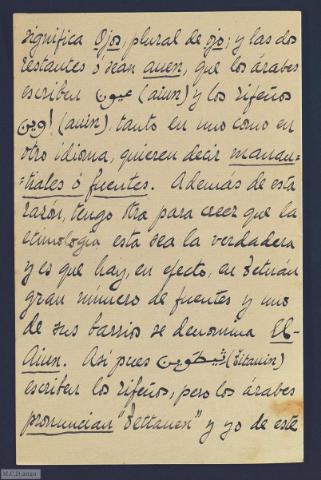 significa Ojos, plural de ojo; y las dos
restantes ó sean auen, que los árabes
escriben عيون (aiun) y los rifeños
اوين (auin), tanto en uno como en
otro idioma, quieren decir manan-
-tiales ó fuentes. Además de esta
razón, tengo otra para creer que la
etimología esta sea la verdadera
y es que hay, en efecto, en Tetuán
gran número de fuentes y uno
de sus barrios se denomina El-
Aiun. Así pues تيطوين (titauin)
escriben los rifeños, pero los árabes
pronuncian "Tettauen" y yo de este